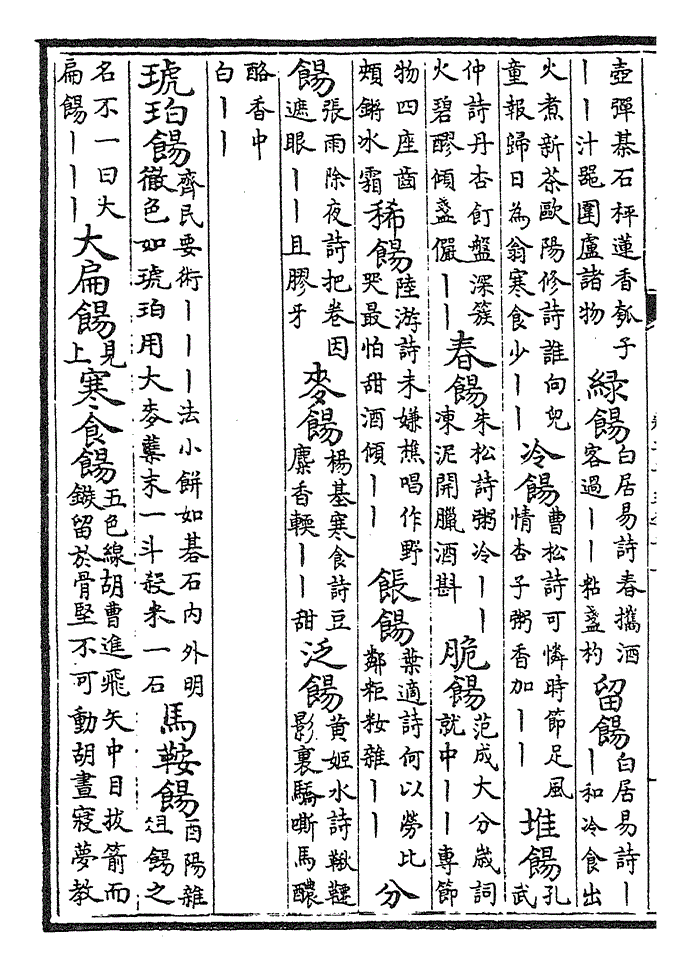 壺彈棊石枰蓮香瓠子——汁罌圍盧諸物 綠餳 白居易詩春攜酒客過——粘盞杓 留餳 白居易詩——和冷食出
火煮新茶歐陽修詩誰向兒童報歸日為翁寒食少—— 冷餳 曹松詩可憐時節足風情杏子粥香加—— 堆餳 孔武
仲詩丹杏飣盤深簇火碧醪傾盞儼—— 春餳 朱松詩粥冷——凍泥開臘酒斟 脆餳 范成大分嵗詞就中——專節
物四座齒頰鏘冰霜 稀餳 陸游詩未嫌樵唱作野哭最怕甜酒傾—— 餦餳 葉適詩何以勞比鄰粔籹雜—— 分
餳 張雨除夜詩把卷因遮眼——且膠牙 麥餳 楊基寒食詩豆麋香輭——甜 泛餳 黄姬水詩鞦韆影裏驕嘶馬醲
酪香中白——
琥珀餳 齊民要術———法小餅如碁石内外明徹色如琥珀用大麥蘖末一斗殺米一石 馬鞍餳 酉陽雜俎餳之
名不一曰大扁餳——— 大扁餳 見上 寒食餳 五色線胡曹進飛矢中目拔箭而鏃留於骨堅不可動胡晝寢夢教